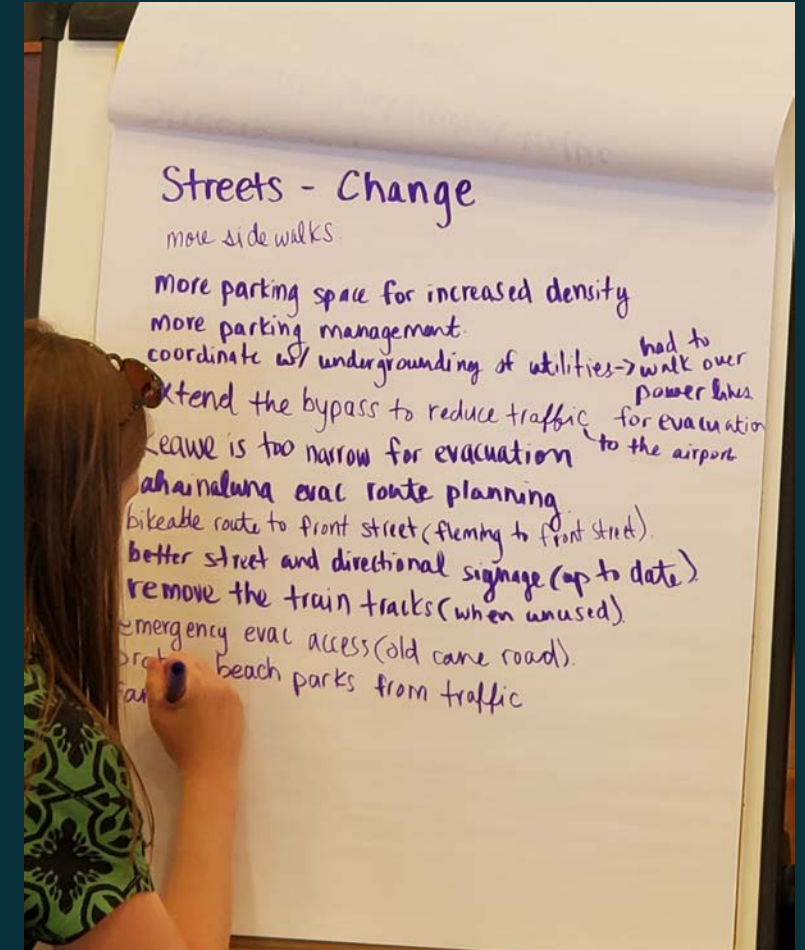 Streets - Change
more sidewalks.
more parking space for increased density
more parking management.
coordinate w/ undergrounding of utilities -> had to walk over power lines
xtend the bypass to reduce traffic for evacuation
to the airport
eawe is too narrow for evacuation
ahainaluna evac route planning
bikeable route to front street (fleming to front street).
better street and directional signage (up to date).
remove the train tracks (when unused).
emergency evac access (old cane road).
beach parks from traffic